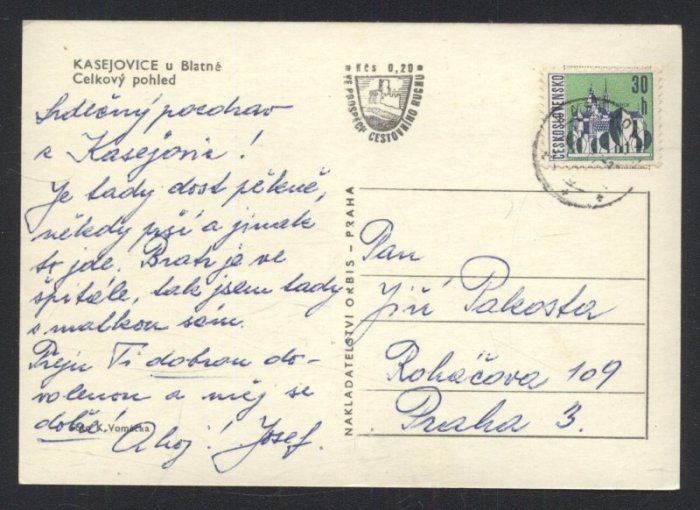 KASEJOVICE u Blatné
Celkový pohled
Kčs 0,20
VE PROSPĚCH CESTOVNÍHO RUCHU
ČESKOSLOVENSKO
30
h
Srdečný pozdrav
z Kasejovic!
Je tady dost pěkně,
někdy prší a jinak
to jde. Bratr je ve
špitále, tak jsem tady
s matkou sám.
Přeju Ti dobrou do-
volenou a měj se
dobře! Ahoj! Josef.
K. Vomáčka
NAKLADATELSTVÍ ORBIS – PRAHA
Pan
Jiří Pakosta
Roháčova 109
Praha 3.